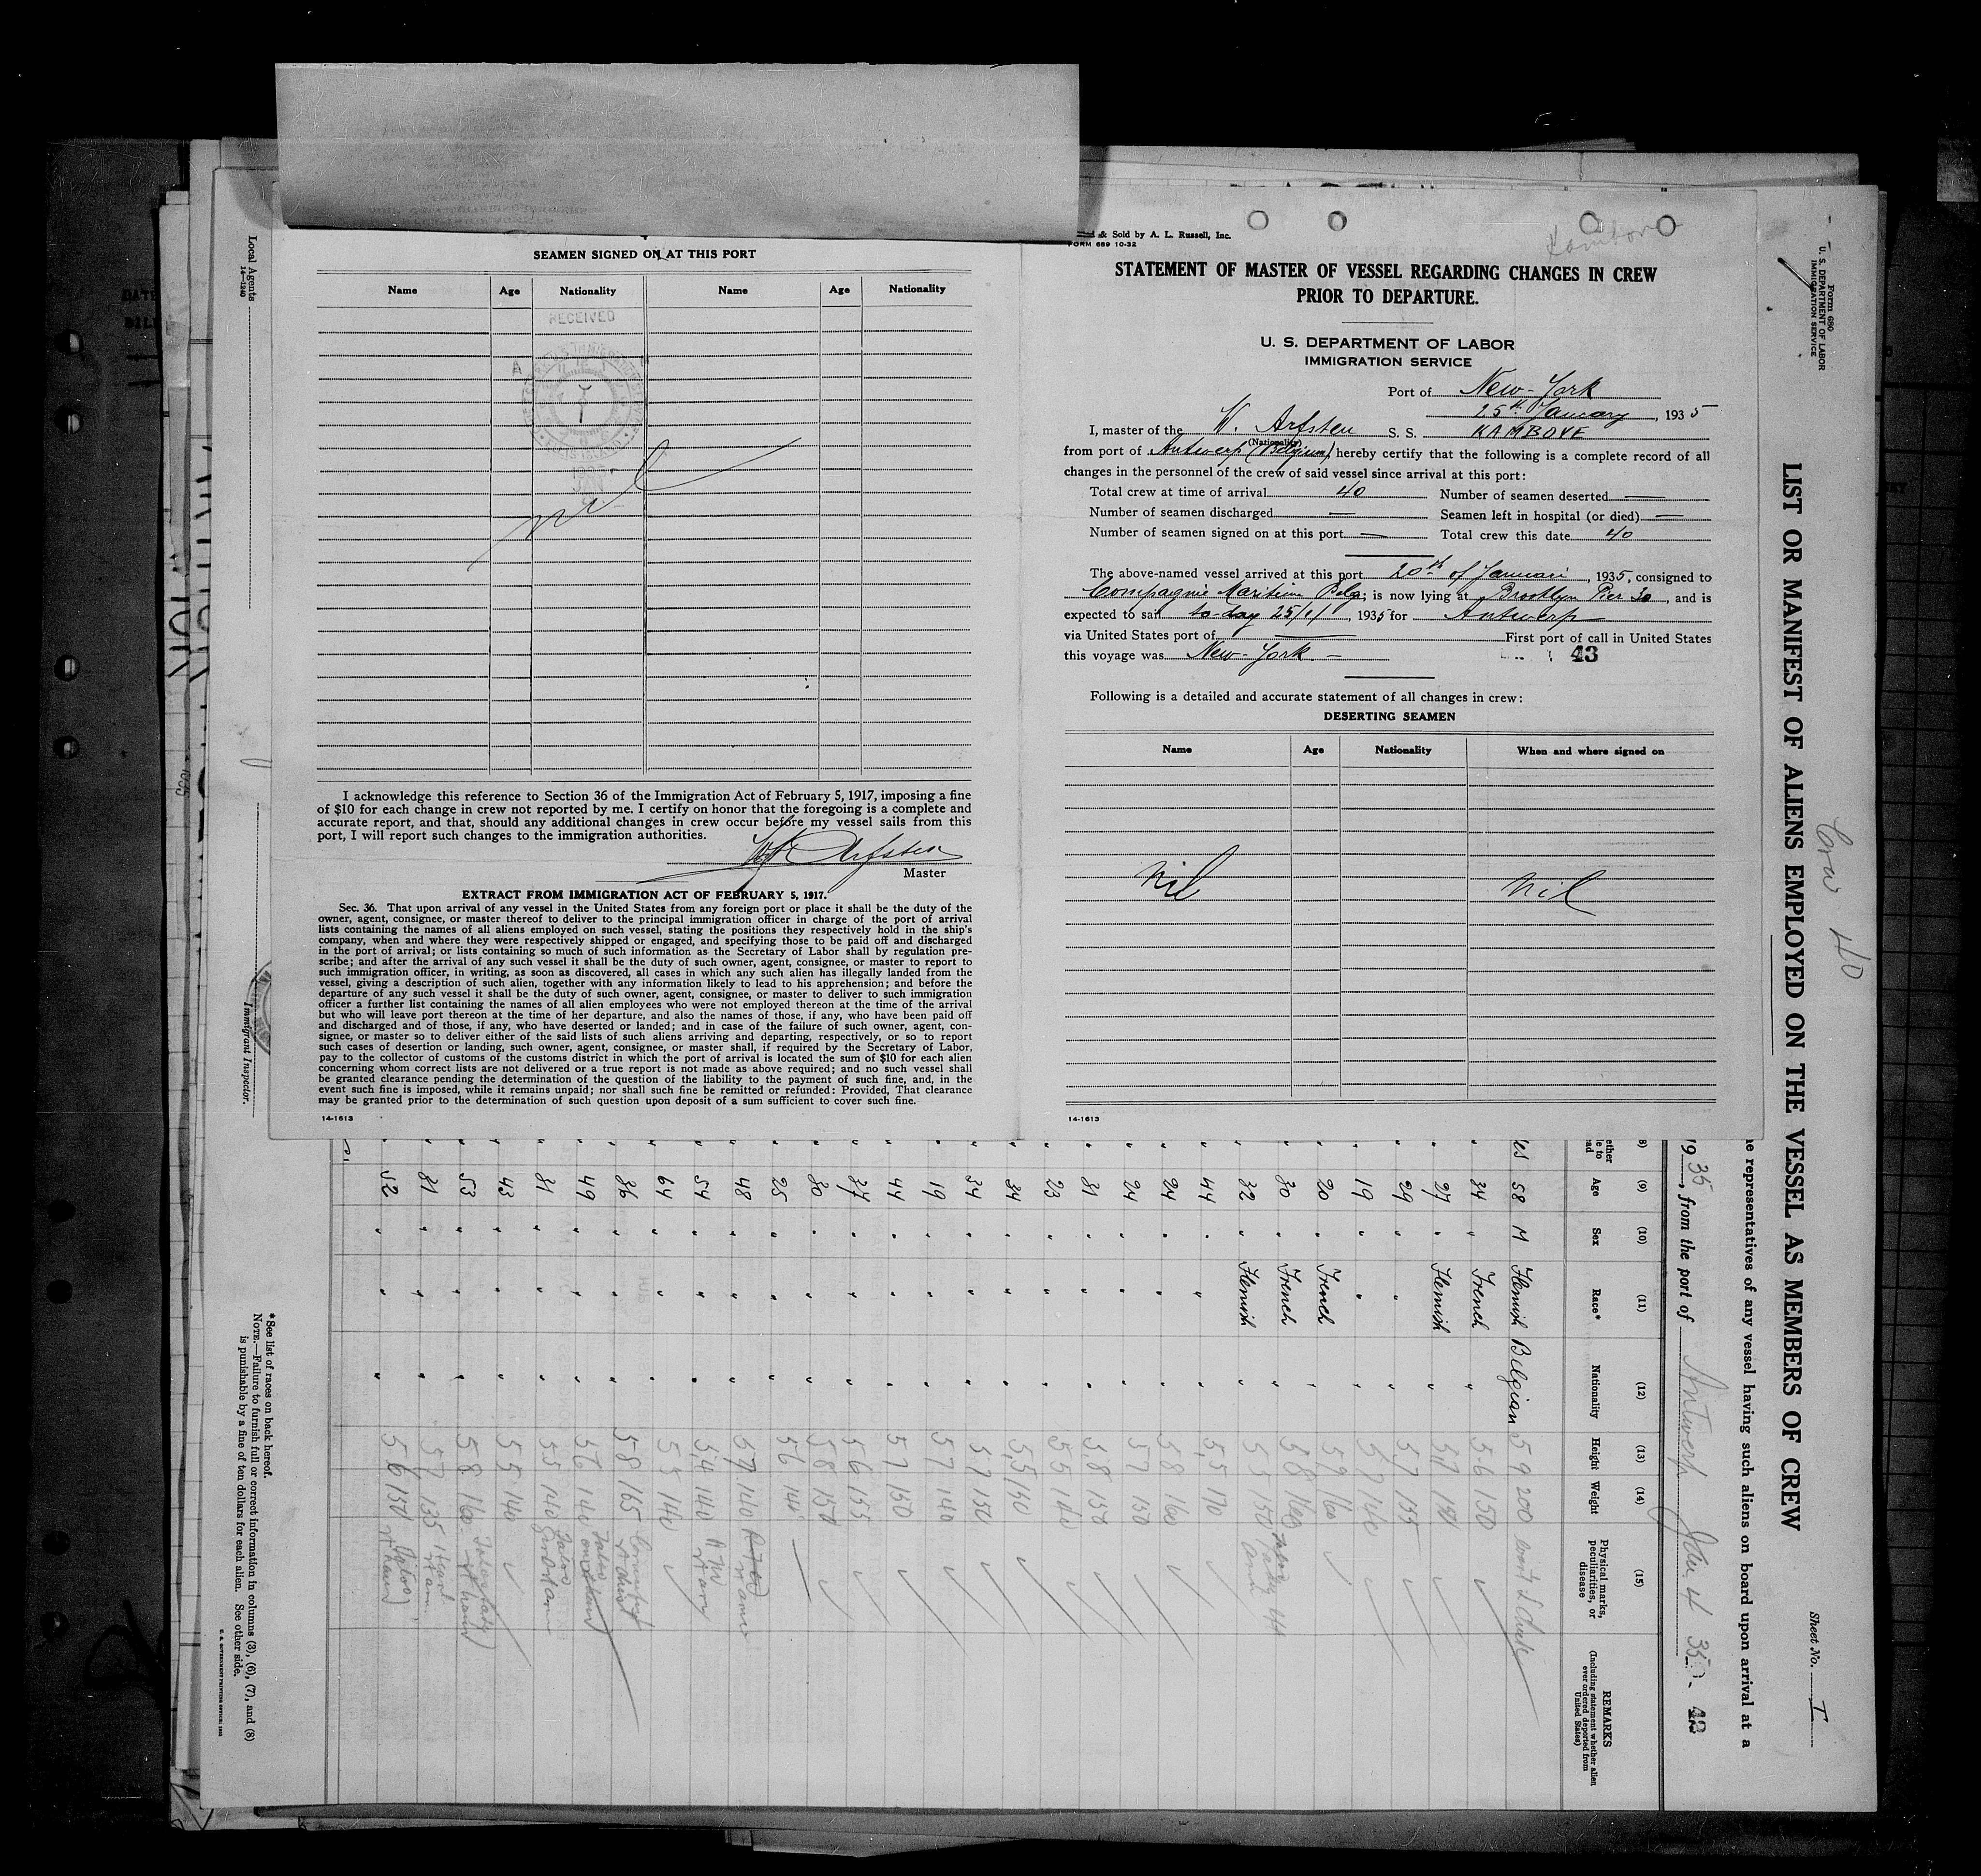 SEAMEN SIGNED ON AT THIS PORT
Name Age Nationality Name Age Nationality
RECEIVED
nil
I acknowledge this reference to Section 36 of the Immigration Act of February 5, 1917, imposing a fine
of $10 for each change in crew not reported by me. I certify on honor that the foregoing is a complete and
accurate report, and that, should any additional changes in crew occur before my vessel sails from this
port, I will report such changes to the immigration authorities.
Arfsten
Master
EXTRACT FROM IMMIGRATION ACT OF FEBRUARY 5, 1917.
Sec. 36. That upon arrival of any vessel in the United States from any foreign port or place it shall be the duty of the
owner, agent, consignee, or master thereof to deliver to the principal immigration officer in charge of the port of arrival
lists containing the names of all aliens employed on such vessel, stating the positions they respectively hold in the ship's
company, when and where they were respectively shipped or engaged, and specifying those to be paid off and discharged
in the port of arrival; or lists containing so much of such information as the Secretary of Labor shall by regulation pre-
scribe; and after the arrival of any such vessel it shall be the duty of such owner, agent, consignee, or master to report to
such immigration officer, in writing, as soon as discovered, all cases in which any such alien has illegally landed from the
vessel, giving a description of such alien, together with any information likely to lead to his apprehension; and before the
departure of any such vessel it shall be the duty of such owner, agent, consignee, or master to deliver to such immigration
officer a further list containing the names of all alien employees who were not employed thereon at the time of the arrival
but who will leave port thereon at the time of her departure, and also the names of those, if any, who have been paid off
and discharged and of those, if any, who have deserted or landed; and in case of the failure of such owner, agent, con-
signee, or master so to deliver either of the said lists of such aliens arriving and departing, respectively, or so to report
such cases of desertion or landing, such owner, agent, consignee, or master shall, if required by the Secretary of Labor,
pay to the collector of customs of the customs district in which the port of arrival is located the sum of $10 for each alien
concerning whom correct lists are not delivered or a true report is not made as above required; and no such vessel shall
be granted clearance pending the determination of the question of the liability to the payment of such fine, and, in the
event such fine is imposed, while it remains unpaid; nor shall such fine be remitted or refunded: Provided, That clearance
may be granted prior to the determination of such question upon deposit of a sum sufficient to cover such fine.
14-1613
& Sold by A. L. Russell, Inc.
FORM 689 10-32
STATEMENT OF MASTER OF VESSEL REGARDING CHANGES IN CREW
PRIOR TO DEPARTURE.
U. S. DEPARTMENT OF LABOR
IMMIGRATION SERVICE
Port of New-York
25th January, 1935
I, master of the W. Arfsten S. S. KAMBOVE
(Nationality)
from port of Antwerp (Belgium) hereby certify that the following is a complete record of all
changes in the personnel of the crew of said vessel since arrival at this port:
Total crew at time of arrival 40 Number of seamen deserted —
Number of seamen discharged — Seamen left in hospital (or died) —
Number of seamen signed on at this port — Total crew this date 40
The above-named vessel arrived at this port 20th of Januari, 1935, consigned to
Compagnie Maritime Belg; is now lying at Brooklyn Pier 30, and is
expected to sail to-day 25/1/, 1935 for Antwerp
via United States port of — First port of call in United States
this voyage was New-York —
43
Following is a detailed and accurate statement of all changes in crew:
DESERTING SEAMEN
Name Age Nationality When and where signed on
nil nil
14-1613
Form 680
U. S. DEPARTMENT OF LABOR
IMMIGRATION SERVICE
LIST OR MANIFEST OF ALIENS EMPLOYED ON THE VESSEL AS MEMBERS OF CREW
Crew 40
Sheet No. I
representatives of any vessel having such aliens on board upon arrival at a
1935, from the port of Antwerp Jan 4 35
42
(9) (10) (11) (12) (13) (14) (15)
Age Sex Race* Nationality Height Weight Physical marks, peculiarities, or disease
REMARKS
(Including statement whether alien ever ordered deported from United States)
58 M Flemish Belgian 5 9 200
34 " French " 5-6 150
27 " Flemish "
29 " " " 5,7 155
19 " " " 5,7 140
20 " French " 5,9 160
30 " French " 5 8 160
32 " Flemish " 5 5 150
44 " " " 5,5 170
24 " " " 5 8 160
24 " " " 5 7 150
31 " " " 5,8
23 " " " 5 5 160
34 " " " 5,5 150
34 " " " 5,7 150
19 " " " 5 7 140
44 " " " 5 7 150
37 " " " 5 6 155
30 " " " 5 8 150
25 " " " 5 6
48 " " " 5 7 140
54 " " " 5 4 140
64 " " " 5 5 140
36 " " " 5 8 165
49 " " " 5 6 140
31 " " " 5 5 140
43 " " " 5 5 140
53 " " " 5 8 160
31 " " " 5 7 135
52 " " " 5 6 150
*See list of races on back hereof.
NOTE.—Failure to furnish full or correct information in columns (3), (6), (7), and (8)
is punishable by a fine of ten dollars for each alien. See other side.
Local Agents
14-1240
Immigrant Inspector.